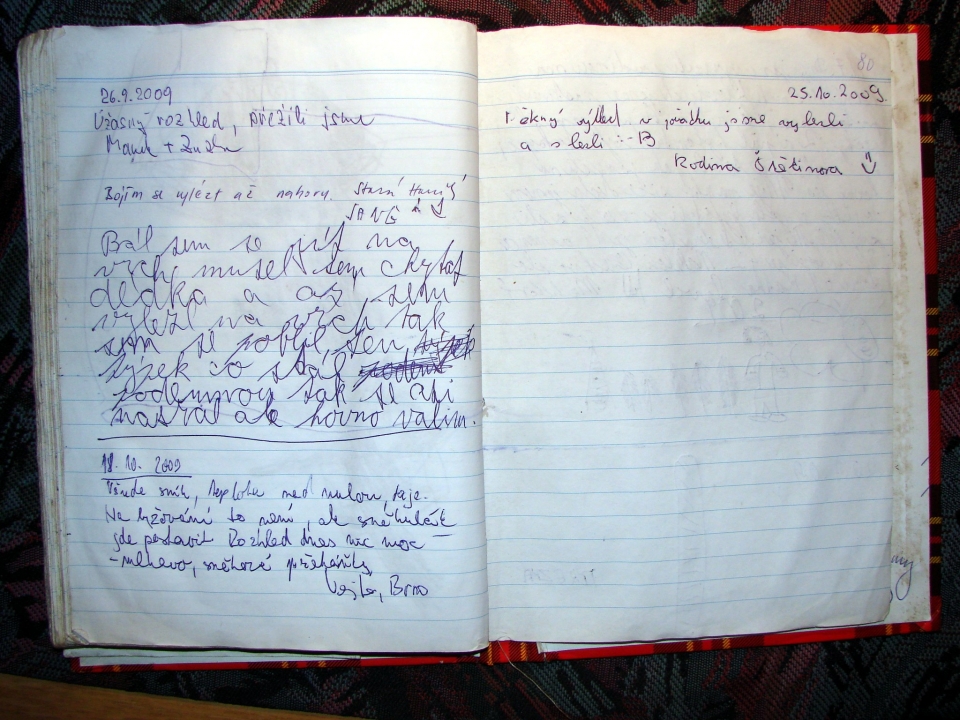 26.9.2009
Úžasný rozhled, přežili jsme
+
Bojím se vylézt až nahoru. Stará
Bál sem se jít na
vrch, musel sem chytat
dědka a až sem
vylezl na vrch tak
sem se
co stál
podemnou tak se asi
nasral ale hovno valim.
18.10.2009
Všude sníh, teplota nad nulou, taje.
Na lyžování to není, ale sněhulák
jde postavit Rozhled dnes nic moc
- mlhavo, sněhové přeháňky
Brno
80
25.10.2009
Pěkný výhled v pořádku jsme vylezli
a slezli :-B
Rodina